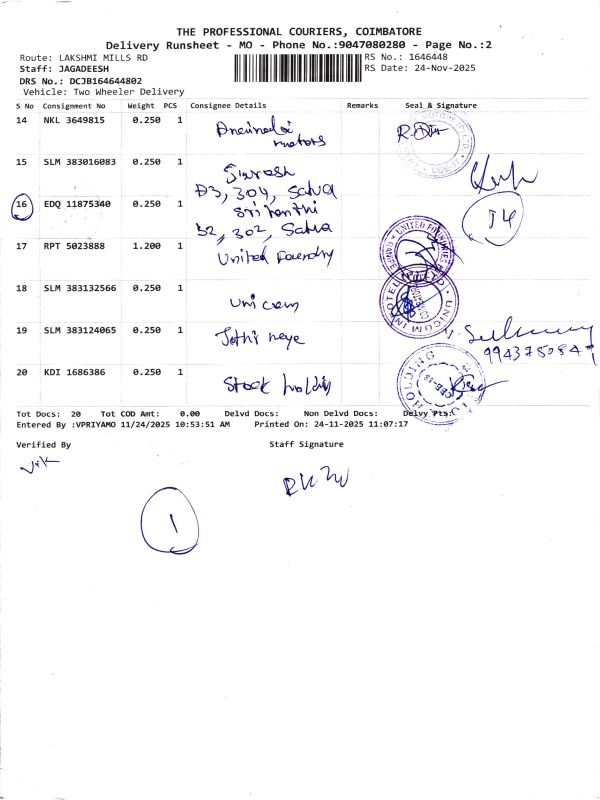 THE PROFESSIONAL COURIERS, COIMBATORE
Delivery Runsheet - MO - Phone No.:9047080280 - Page No.:2
Route: LAKSHMI MILLS RD
RS No.: 1646448
Staff: JAGADEESH
RS Date: 24-Nov-2025
DRS No.: DCJB164644802
Vehicle: Two Wheeler Delivery
S No Consignment No Weight PCS Consignee Details Remarks Seal & Signature
14 NKL 3649815 0.250 1
motors
15 SLM 383016083 0.250 1 Suresh
D3, 304, Satva
16 EDQ 11875340 0.250 1 Sri
302, Satva
17 RPT 5023888 1.200 1 United Foundry
UNITED FOUNDRIES
18 SLM 383132566 0.250 1 Unicom
19 SLM 383124065 0.250 1 Jothi
20 KDI 1686386 0.250 1 Stock holding
HOLDING
Tot Docs: 20 Tot COD Amt: 0.00 Delvd Docs: Non Delvd Docs: Delvy Pts:
Entered By :VPRIYAMO 11/24/2025 10:53:51 AM Printed On: 24-11-2025 11:07:17
Verified By Staff Signature
1